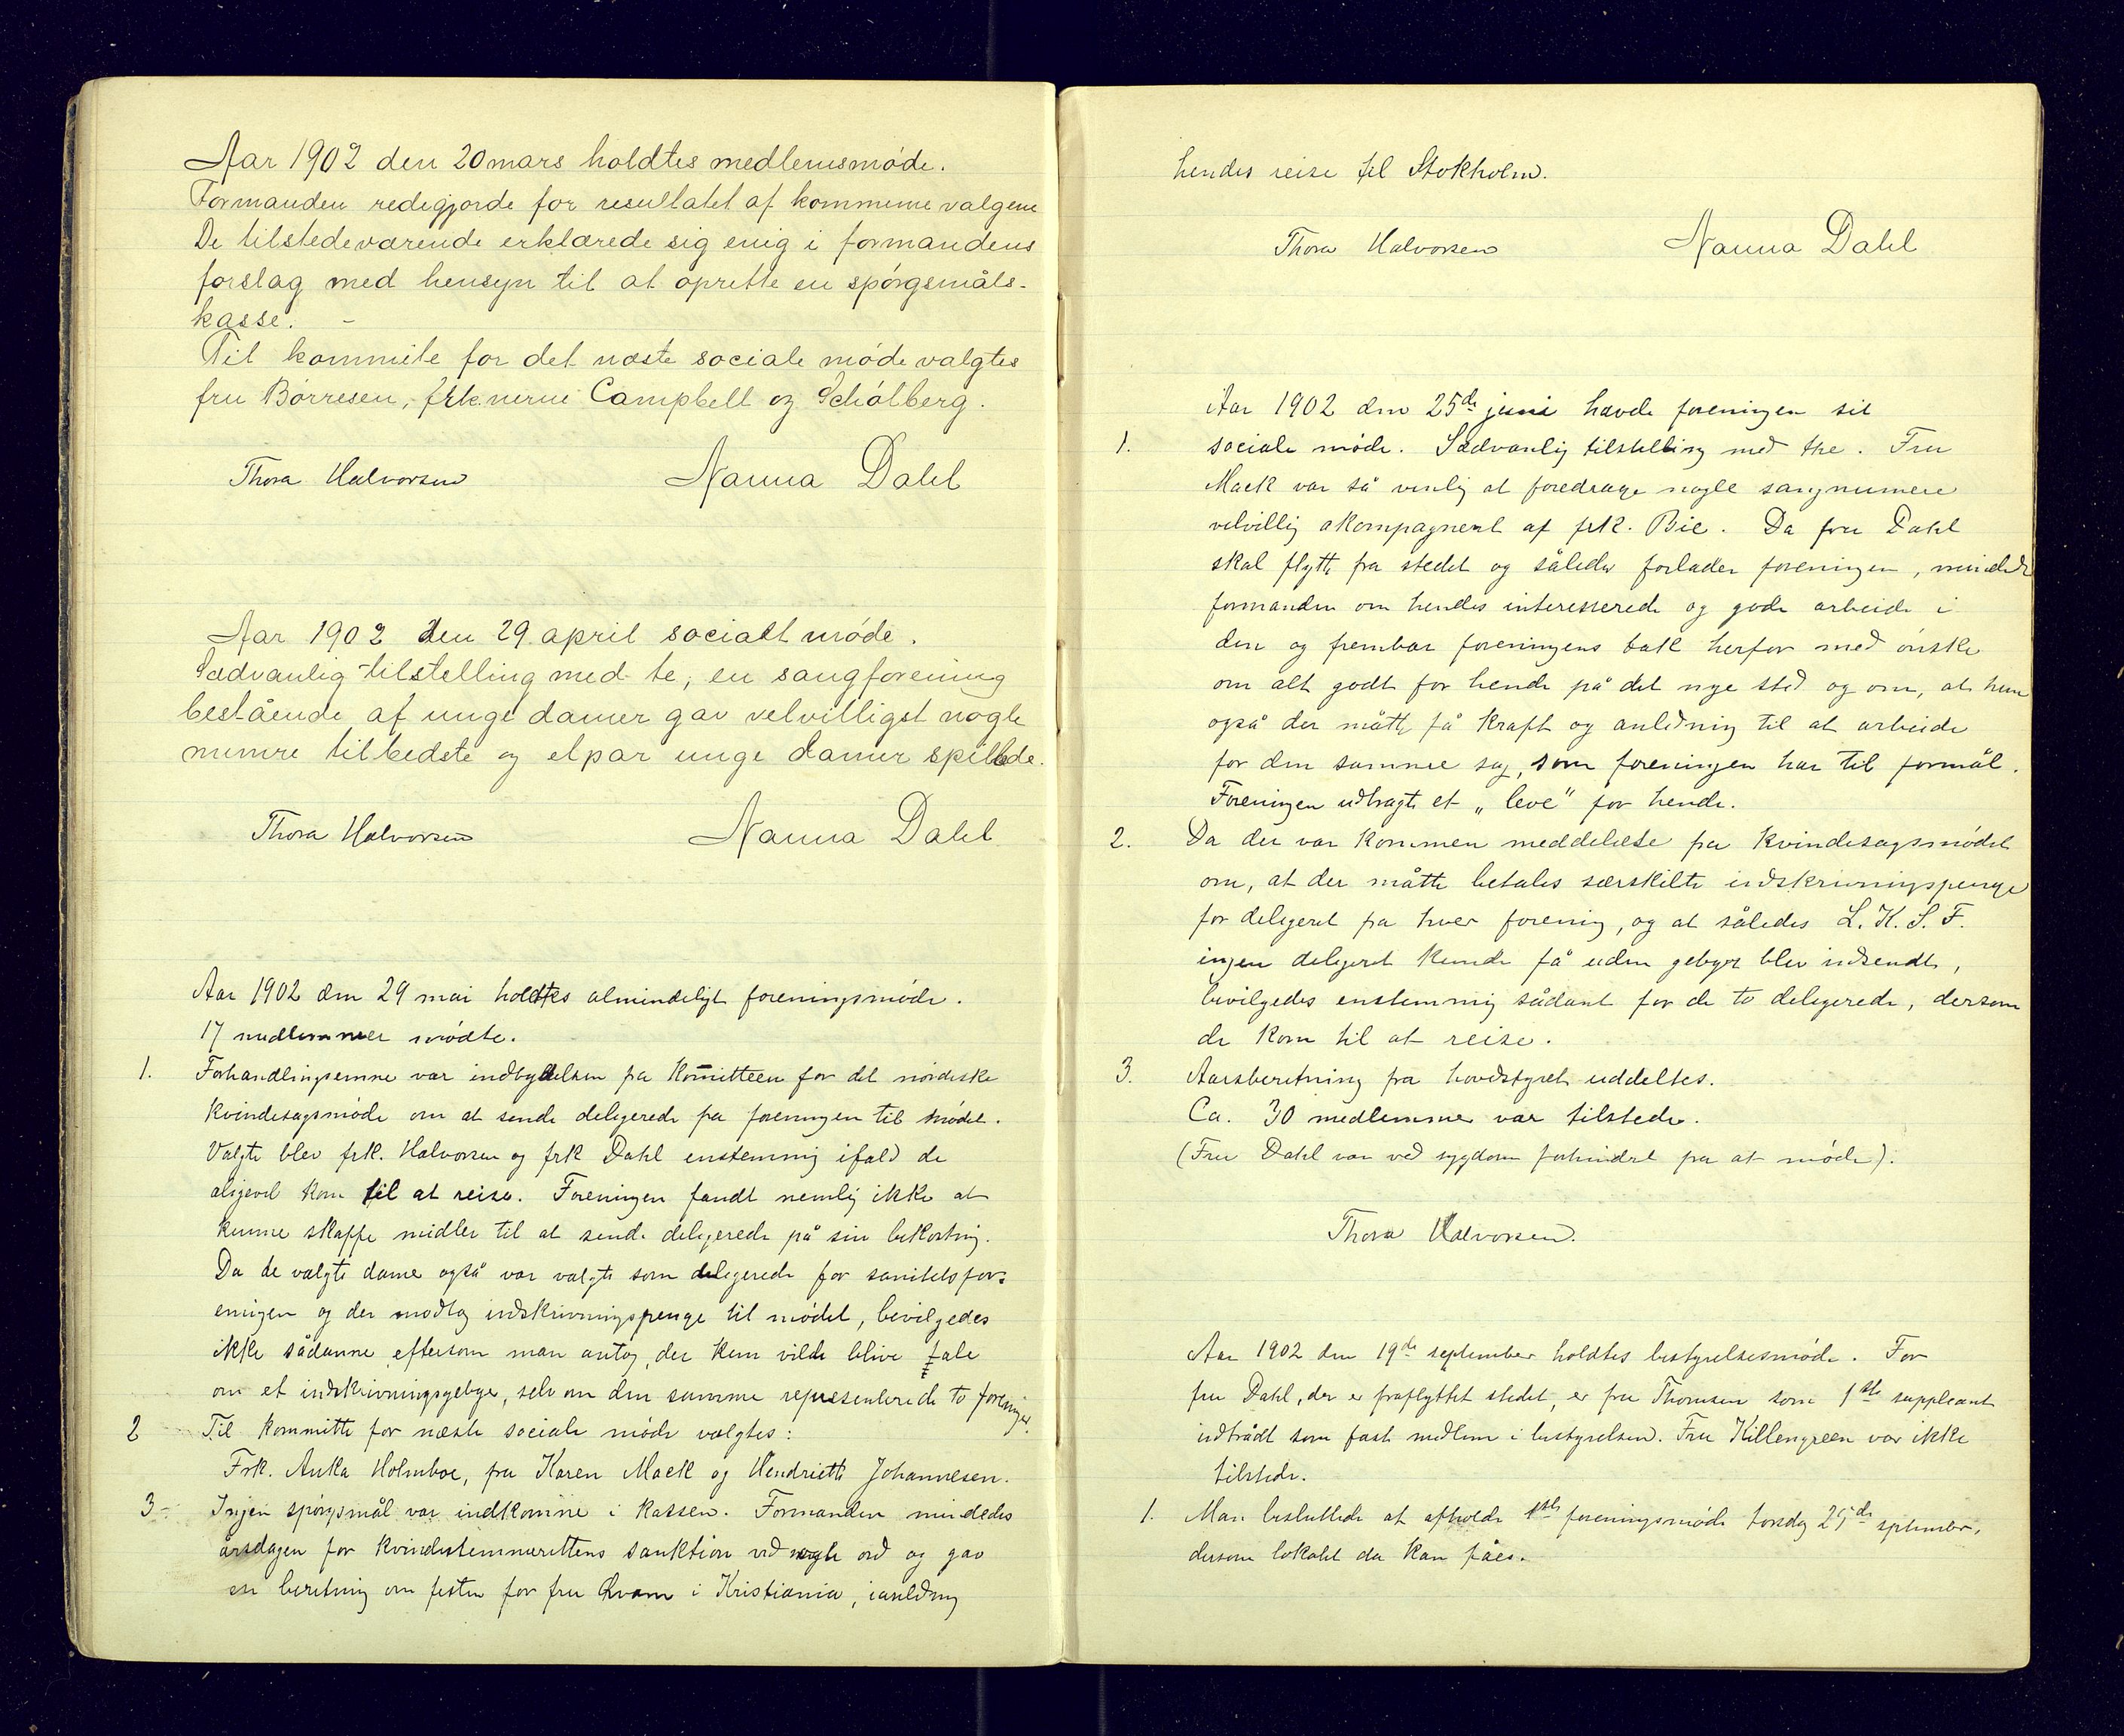 Aar 1902 den 20 mars holdtes medlemsmøde.
Formanden redegjorde for resultatet af kommunevalgene
De tilstedeværende erklærede sig enig i formandens
forslag med hensyn til at oprette en spørgsmåls-
kasse. –
Til kommite for det næste sociale møde valgtes
fru Børresen, frknerne Campbell og Schølberg.
Thora Halvorsen Nanna Dahl
Aar 1902 den 29. april socialt møde.
Sædvanlig tilstelling med te, en sangforening
bestående af unge damer gav velvilligst nogle
numre tilbedste og et par unge damer spillede.
Thora Halvorsen Nanna Dahl
Aar 1902 den 29 mai holdtes almindeligt foreningsmøde.
17 medlemmer mødte.
1. Forhandlingsemne var indbydelsen fra komitteen for det nordiske
kvindesagsmøde om at sende delegerede fra foreningen til mødet.
Valgte blev frk. Halvorsen og frk Dahl enstemmig ifald de
aligevel kom til at reise. Foreningen fandt nemlig ikke at
kunne skaffe midler til at sende delegerede på sin bekostning.
Da de valgte damer også var valgte som delegerede for sanitetsfor=
eningen og der modtog indskrivningspenge til mødet, bevilgedes
ikke sådanne eftersom man antog, der kun vilde blive tale
om et indskrivningsgebyr, selv om den samme representerede to foreninger.
2 Til kommitte for næste sociale møde valgtes:
Frk. Anka Holmboe, fru Karen Mack og Hendriette Johannesen.
3– Ingen spørgsmål var indkomne i kassen. Formanden mindedes
årsdagen for kvindestemmerettens sanktion ved nogle ord og gav
en beretning om festen for fru Qvam i Kristiania, ianledning
hendes reise til Stokholm.
Thora Halvorsen Nanna Dahl
Aar 1902 den 25de juni havde foreningen sit
1. sociale møde. Sædvanlig tilstelling med the. Fru
Mack var så venlig at foredrage nogle sangnumere
velvillig akompagneret af frk. Bie. Da fru Dahl
skal flytte fra stedet og således forlader foreningen, mindede
formanden om hendes interesserede og gode arbeide i
den og frembar foreningens tak herfor med ønske
om alt godt for hende på det nye sted og om, at hun
også der måtte få kraft og anledning til at arbeide
for den samme sag, som foreningen har til formål.
Foreningen udbragte et „leve" for hende.
2. Da der var kommen meddelelse fra kvindesagsmødet
om, at der måtte betales særskilte indskrivningspenge
for delegeret fra hver forening, og at således L. K. S. F.
ingen delegeret kunde få uden gebyr blev indsendt,
bevilgedes enstemmig sådant for de to delegerede, dersom
de kom til at reise.
3. Aarsberetning fra hovedstyret uddeltes.
Ca. 30 medlemmer var tilstede.
(Fru Dahl var ved sygdom forhindret fra at møde).
Thora Halvorsen.
Aar 1902 den 19de september holdtes bestyrelsesmøde. For
fru Dahl, der er fraflyttet stedet, er fru Thomsen som 1ste suppleant
indtrådt som fast medlem i bestyrelsen. Fru Killengreen var ikke
tilstede.
1. Man besluttede at afholde 1ste foreningsmøde torsdag 25de september,
dersom lokalet da kan fåes.